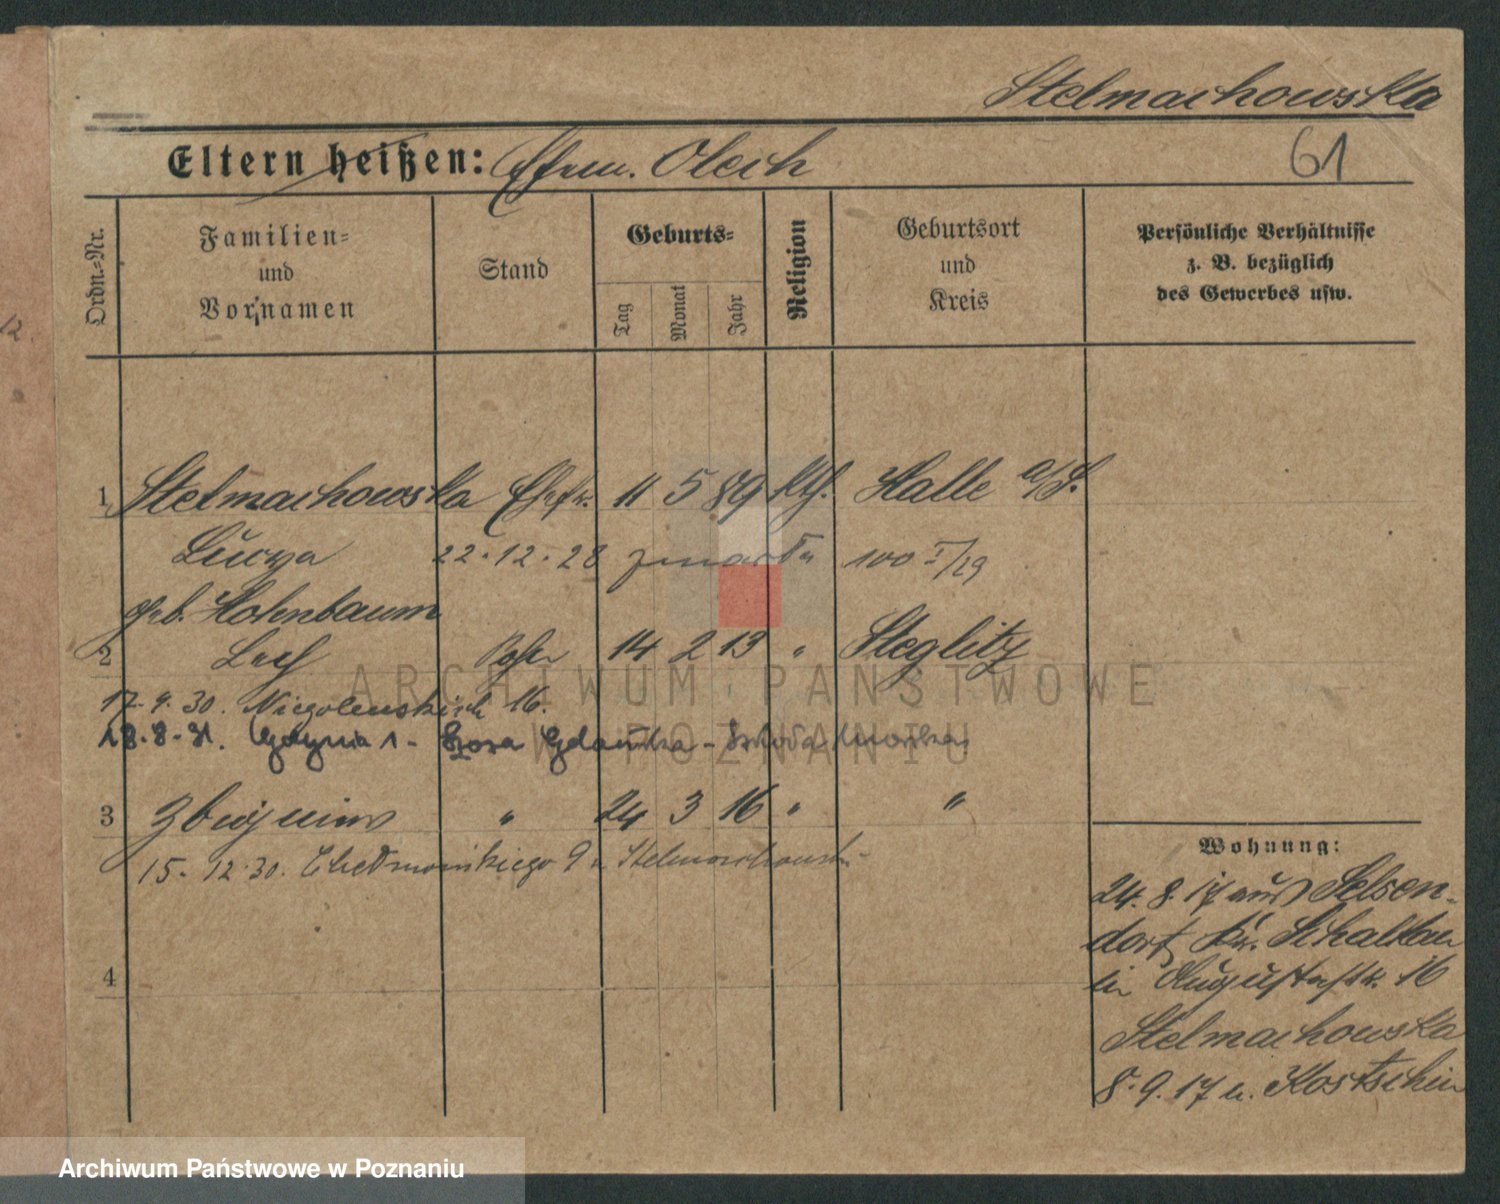 Stelmachowska
Eltern heißen: Ehem. Olech
61
Ordn.=Nr.
Familien=
und
Vornamen
Stand
Geburts=
Tag
Monat
Jahr
Religion
Geburtsort
und
Kreis
Persönliche Verhältnisse
z. B. bezüglich
des Gewerbes usw.
1 Stelmachowska Ehefr. 11 5 89 kth. Halle a/S.
Lucya 22.12.28 zmarła 100 I/29
geb. Hohnbaum
2 Lech Sohn 14 2 13 " Steglitz
17.9.30. Niegolewskich 16.
28.8.31. Gdynia 1 - Szosa Gdańska - Szkoła Morska
3 Zbigniew " 24 3 16 " "
15.12.30. 9 Stelmachowski
4
Wohnung:
24.8.17 aus Selsen-
dorf Kr. Schalkau
in Augustastr. 16
Stelmachowska
8.9.17 n. Kostschin
ARCHIWUM PAŃSTWOWE
W POZNANIU
Archiwum Państwowe w Poznaniu